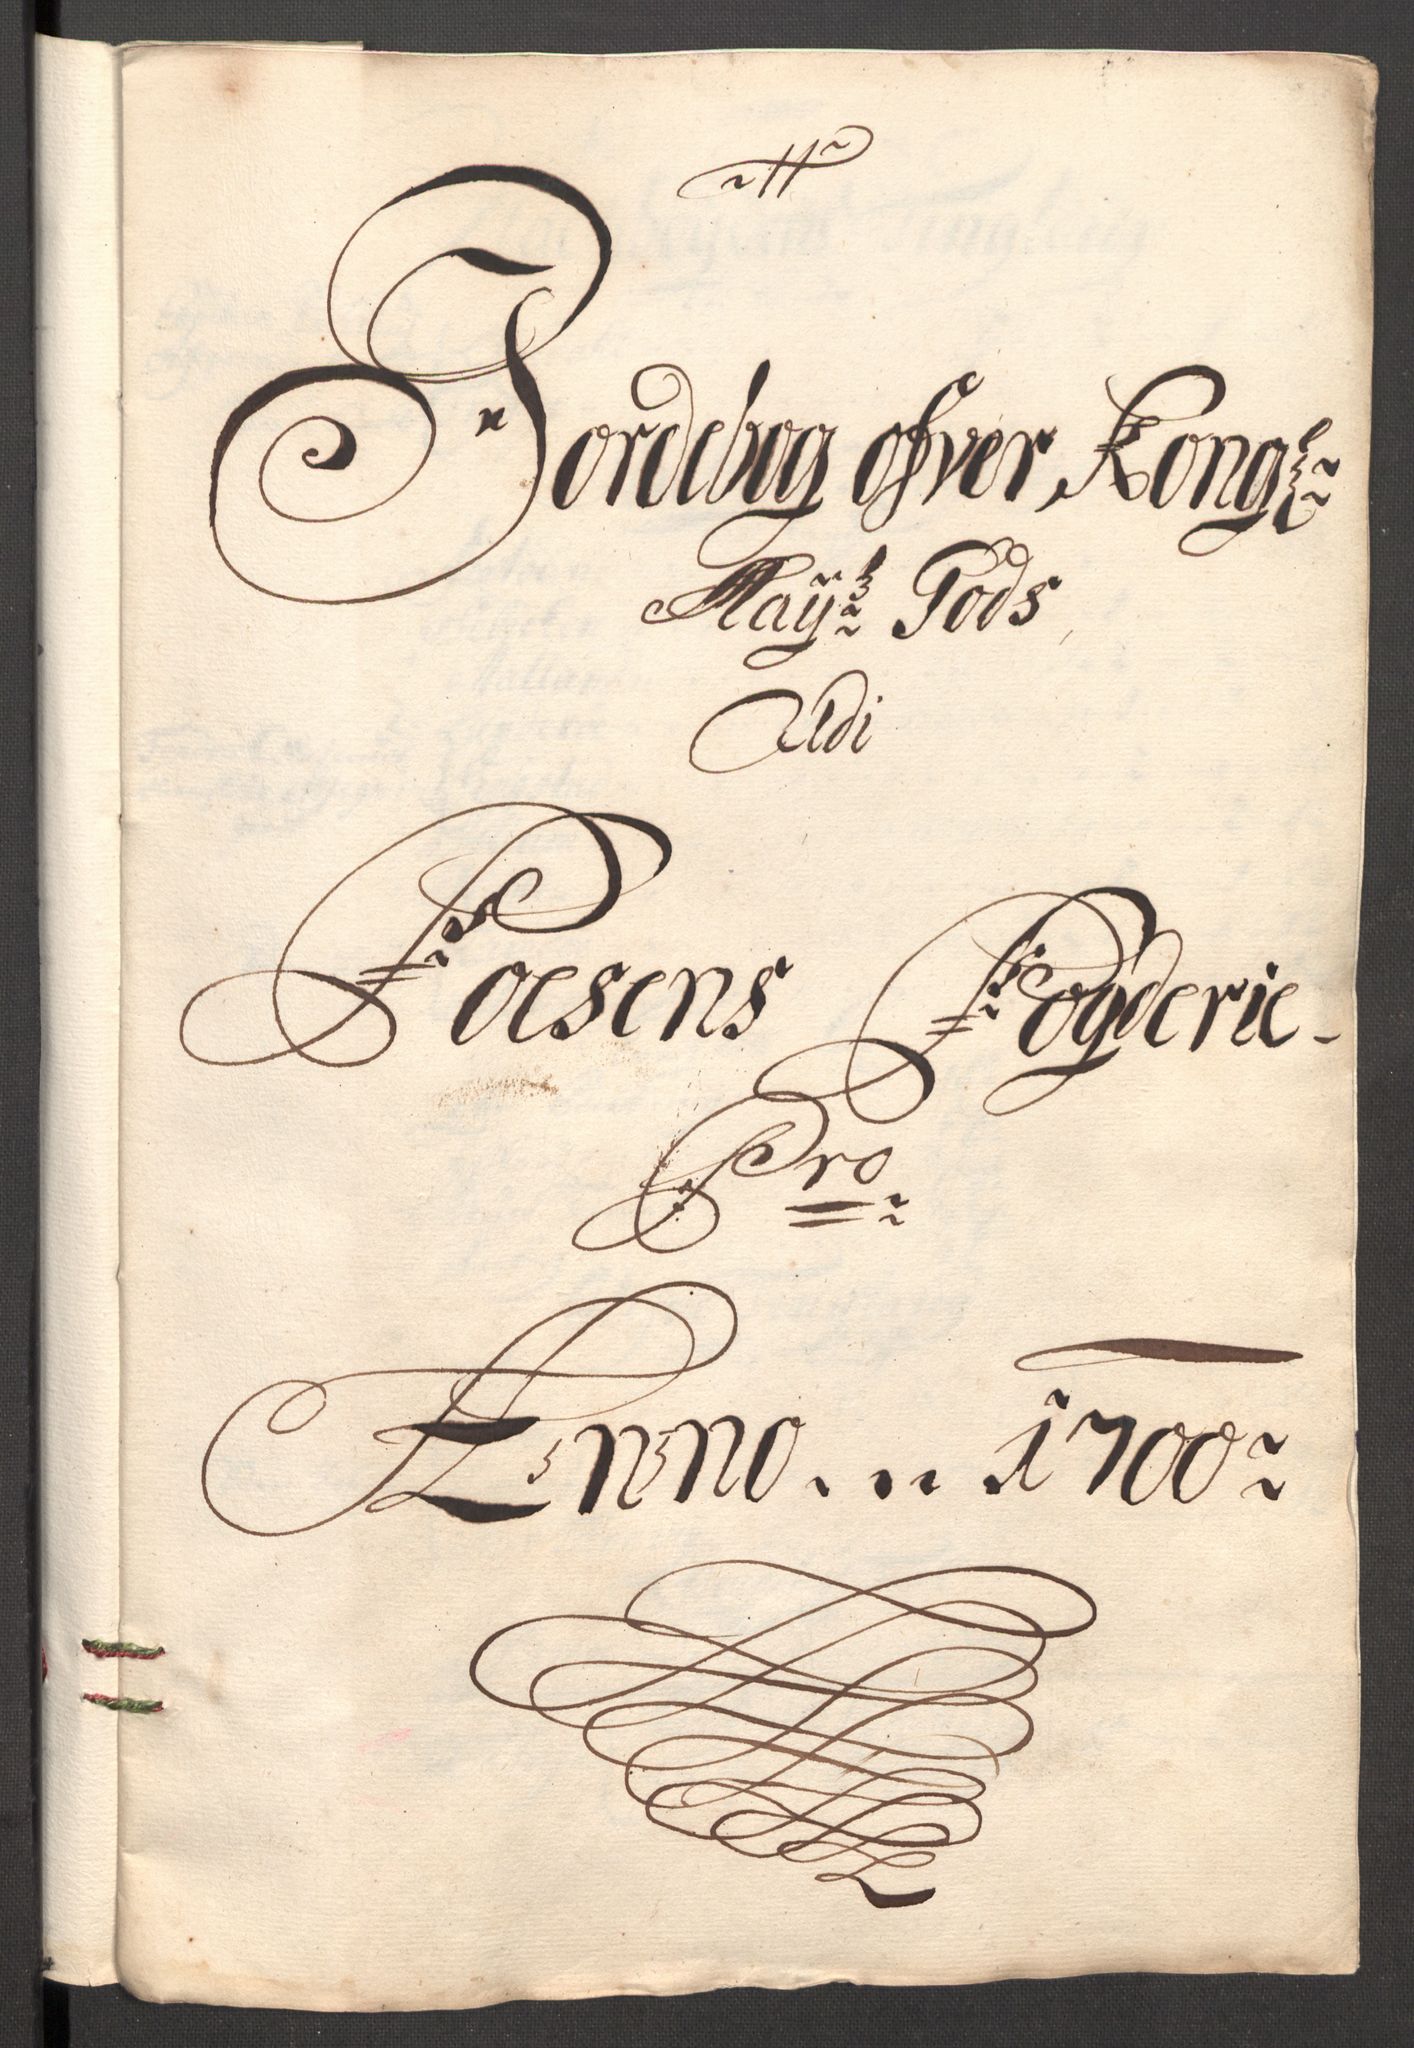 Jordebog ofver Kongl:
Maÿ:s Gods
Udi
Foesens Fogderie
Pro
Anno... 1700